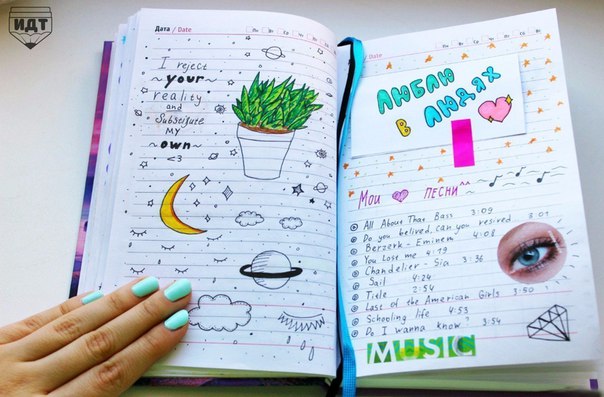 ИДТ
Дата / Date
Пн Вт Ср Чт Пт Сб Вс
I reject
~your~
reality
and
Substitute
MY
~own~
<3
/ Date
Пн Вт Ср Чт Пт Сб Вс
ЛЮБЛЮ
В ЛЮДЯХ
Мои песни^^
All About That Bass 3:09
Do you belived, can you resived 3:01
Berzerk - Eminem 4:08
You Lose me 4:19
Chandelier - Sia 3:36
Sail 4:24
Title 2:54
Last of the American Girls 3:50
Schooling life 4:53
Do I wanna know? 3:54
MUSIC